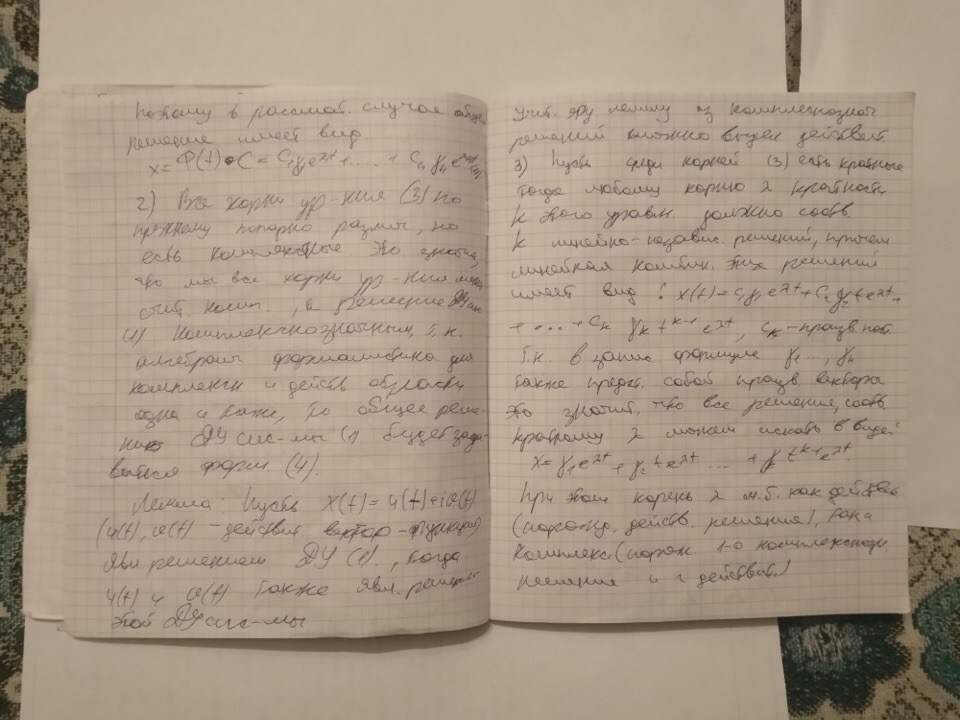 поэтому в рассмат. случае общее
решение имеет вид
x = Ф(t)•C = C₁γ₁e^λt + .... + Cₙ γₙ e^λt (4)
2) Все корни ур-ния (3) по
прежнему попарно различ, но
есть комплексные это значит,
что мы все корни ур-ния
счит комп. , а решение ДУ
(1) комплекснозначным, т.к.
алгебраич формалистика для
комплексн и действ
одна и таже, то общее реше-
ние ДУ сис-мы (1 будет зада-
ваться форм. (4).
Лемма: Пусть X(t) = u(t)+iv(t)
(u(t), v(t) - действит вектор-функция)
явл. решением ДУ (1)., тогда
u(t) и v(t) также явл. решен
этой ДУ сис-мы
Учит. эту лемму из комплекснознач
решений можно выдел. действит.
3) Пусть среди корней (3) есть кратные
тогда любому корню λ кратности
k этого уравн. должно соотв.
k линейно-независ. решений, причем
линейная комбин. этих решений
имеет вид : x(t) = c₁γ₁e^λt + C₂γ₂te^λt +
+ .... + Cₖ γₖ t^k-1 e^λt, cₖ - произв пост.
Т.к. в запис формуле γ₁ ..., γₙ
также предст. собой произв вектора
это значит. что все решения, соотв.
кратному λ можем искать в виде:
X = γ₁e^λt + γ₂te^λt ... + γₖt^k-1e^λt.
При этом корень λ м.б. как действ
(порожд. действ. решение), так и
комплекс (порож 1-о комплекснозн.
решение и 2 действит.)